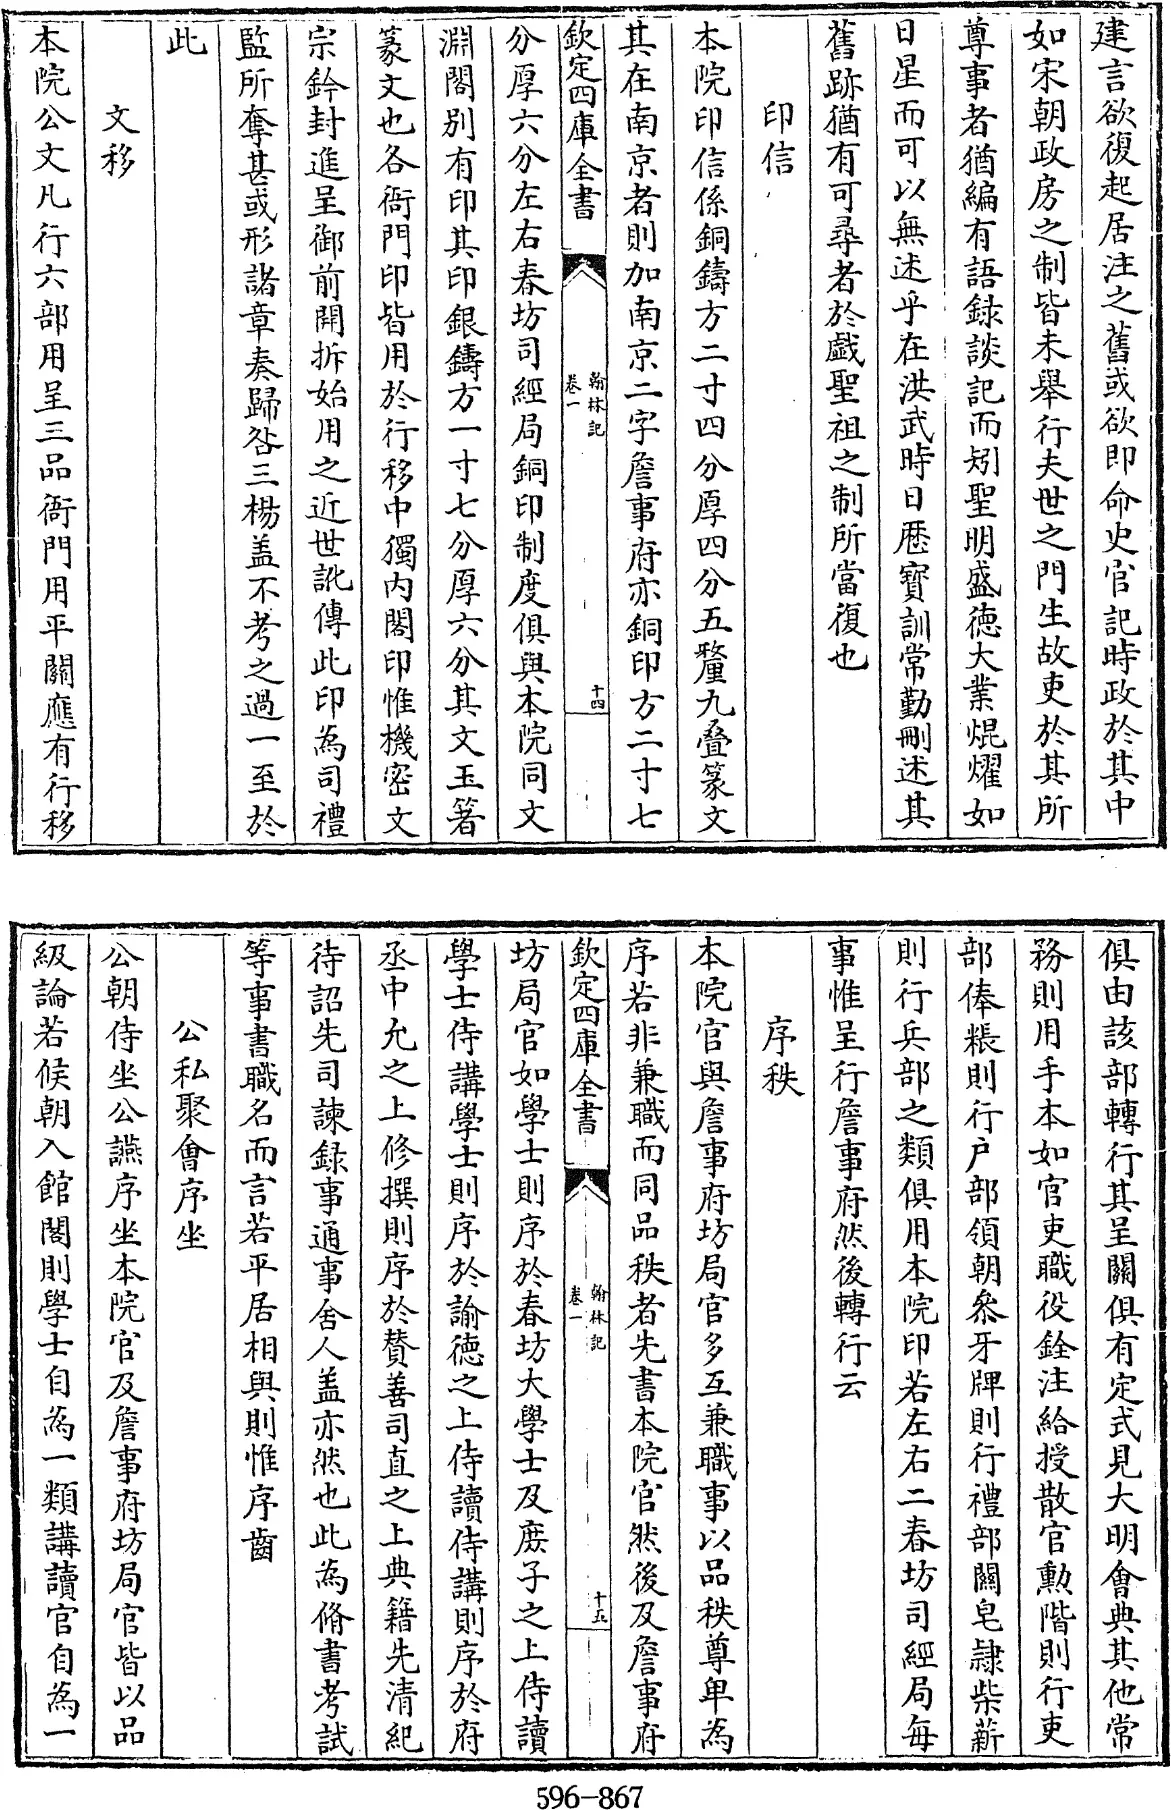 建言欲復起居注之舊或欲即命史官記時政於其中
如宋朝政房之制皆未舉行夫世之門生故吏於其所
尊事者猶編有語録談記而矧聖明盛徳大業焜燿如
日星而可以無述乎在洪武時日厯寳訓常勤刪述其
舊跡猶有可尋者於戯聖祖之制所當復也
印信
本院印信係銅鑄方二寸四分厚四分五釐九疊篆文
其在南京者則加南京二字詹事府亦銅印方二寸七
欽定四庫全書
翰林記
卷一
十四
分厚六分左右春坊司經局銅印制度俱與本院同文
淵閣别有印其印銀鑄方一寸七分厚六分其文玉箸
篆文也各衙門印皆用於行移中獨内閣印惟機密文
宗鈐封進呈御前開拆始用之近世訛傳此印為司禮
監所奪甚或形諸章奏歸咎三楊盖不考之過一至於
此
文移
本院公文凡行六部用呈三品衙門用平關應有行移
俱由該部轉行其呈關俱有定式見大明會典其他常
務則用手本如官吏職役銓注給授散官勲階則行吏
部俸粻則行户部領朝叅牙牌則行禮部關皂隷柴薪
則行兵部之類俱用本院印若左右二春坊司經局每
事惟呈行詹事府然後轉行云
序秩
本院官與詹事府坊局官多互兼職事以品秩尊卑為
序若非兼職而同品秩者先書本院官然後及詹事府
欽定四庫全書
翰林記
卷一
十五
坊局官如學士則序於春坊大學士及庻子之上侍讀
學士侍講學士則序於諭徳之上侍讀侍講則序於府
丞中允之上修撰則序於賛善司直之上典籍先清紀
待詔先司諫録事通事舍人盖亦然也此為脩書考試
等事書職名而言若平居相與則惟序齒
公私聚會序坐
公朝侍坐公讌序坐本院官及詹事府坊局官皆以品
級論若候朝入館閣則學士自為一類講讀官自為一
596-867